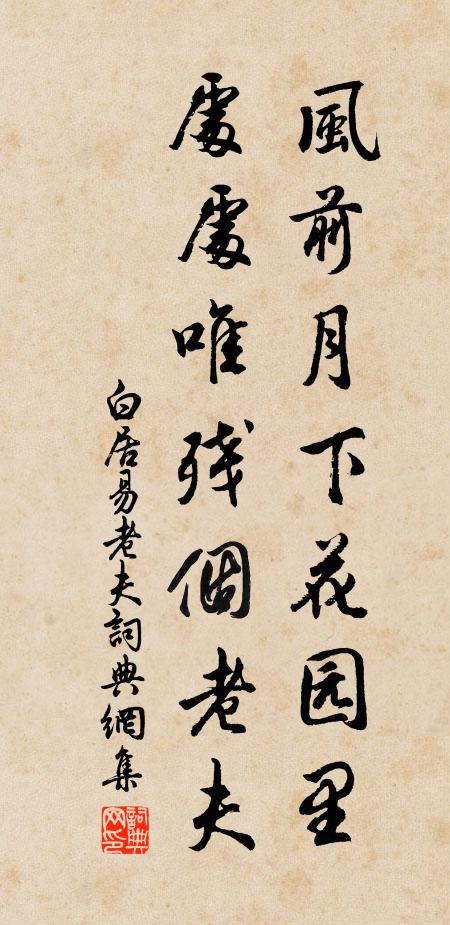 風前月下花园里
處處唯残個老夫
白居易老夫詞典網集
詞典网印